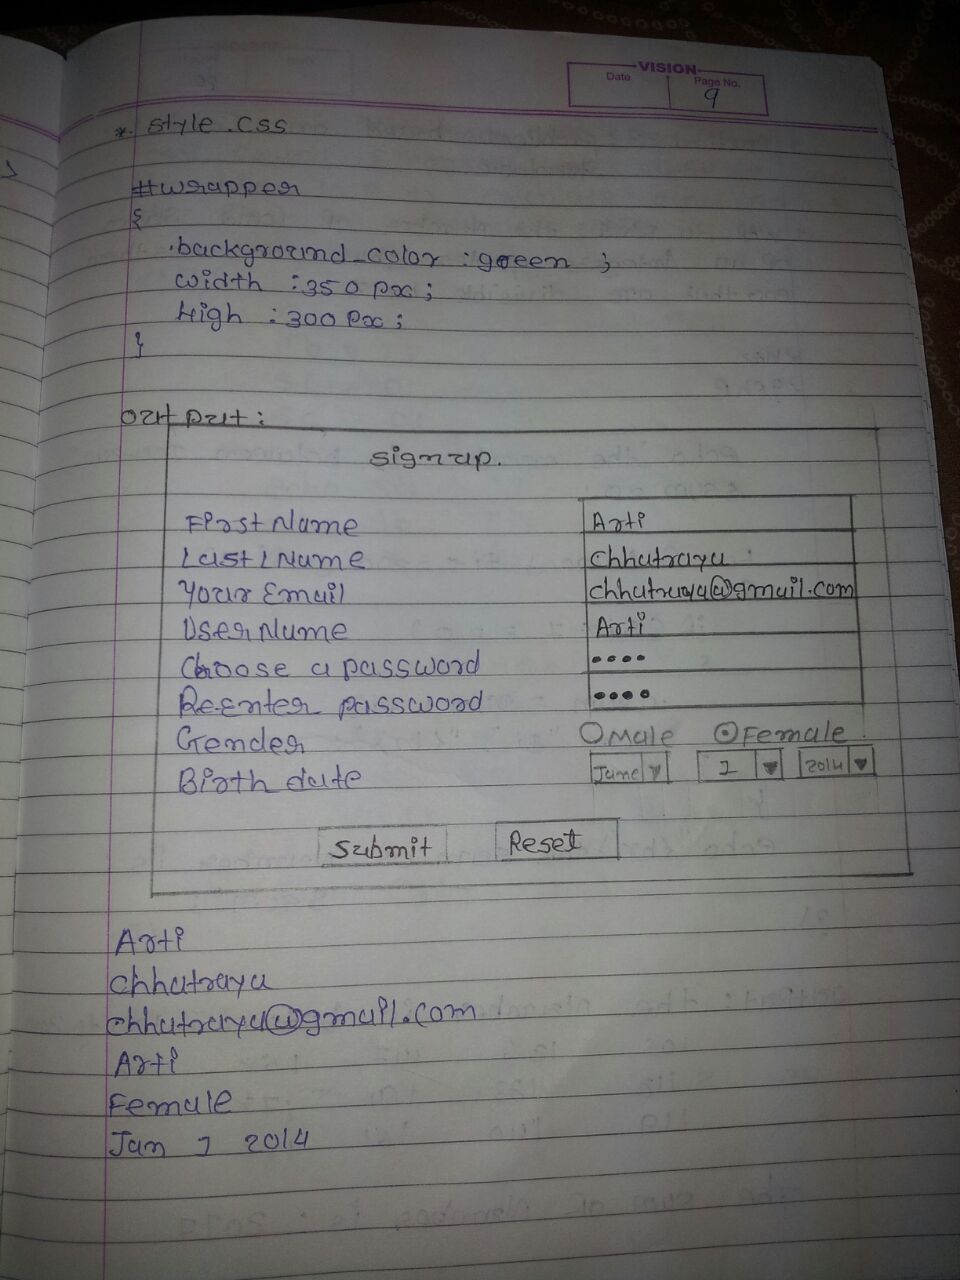 VISION
Date
Page No.
9
*. style.css
#wrapper
{
.background_color : green ;
width : 350 px ;
High : 300 Px ;
}
output :
signup.
First Name Arti
Last Name chhatraya
Your Email chhatraya@gmail.com
User Name Arti
Choose a password ••••
Re-Enter password ••••
Gender Male Female
Birth date June 1 2014
Submit Reset
Arti
chhatraya
chhatraya@gmail.com
Arti
Female
Jan 1 2014